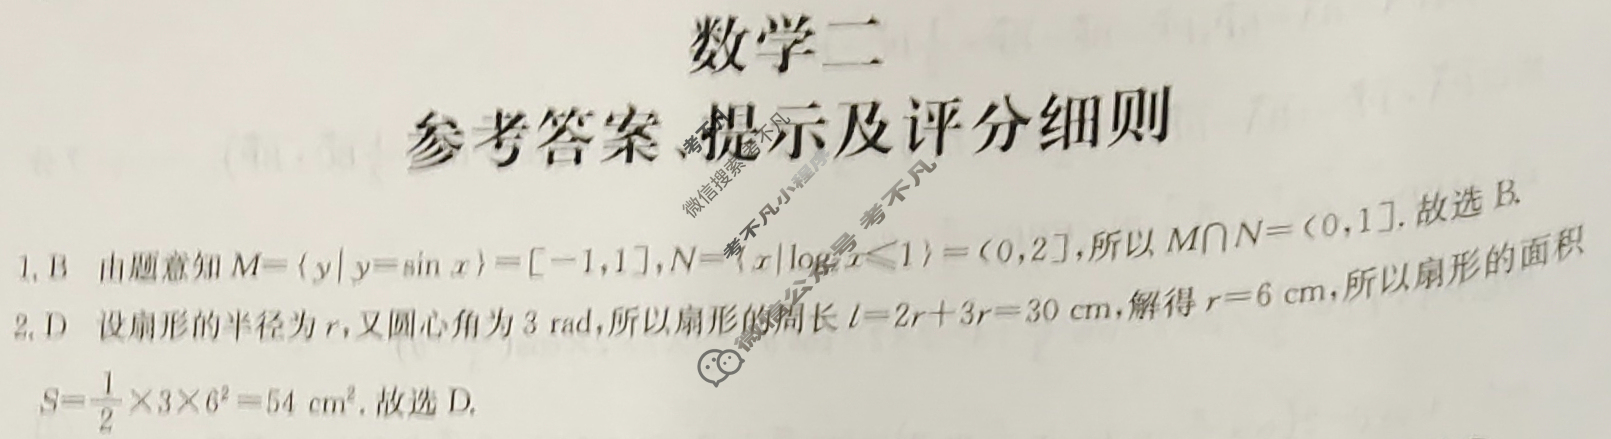 数学二
参考答案、提示及评分细则
1. B 由题意知 M={y|y=sin x}=[-1,1],N={x|log₂x≤1}=(0,2],所以 M∩N=(0,1]. 故选 B.
2. D 设扇形的半径为 r,又圆心角为 3 rad,所以扇形的周长 l=2r+3r=30 cm,解得 r=6 cm,所以扇形的面积
S=1/2×3×6²=54 cm². 故选 D.
考不凡
微信搜索考不凡
考不凡小程序
微信公众号 考不凡